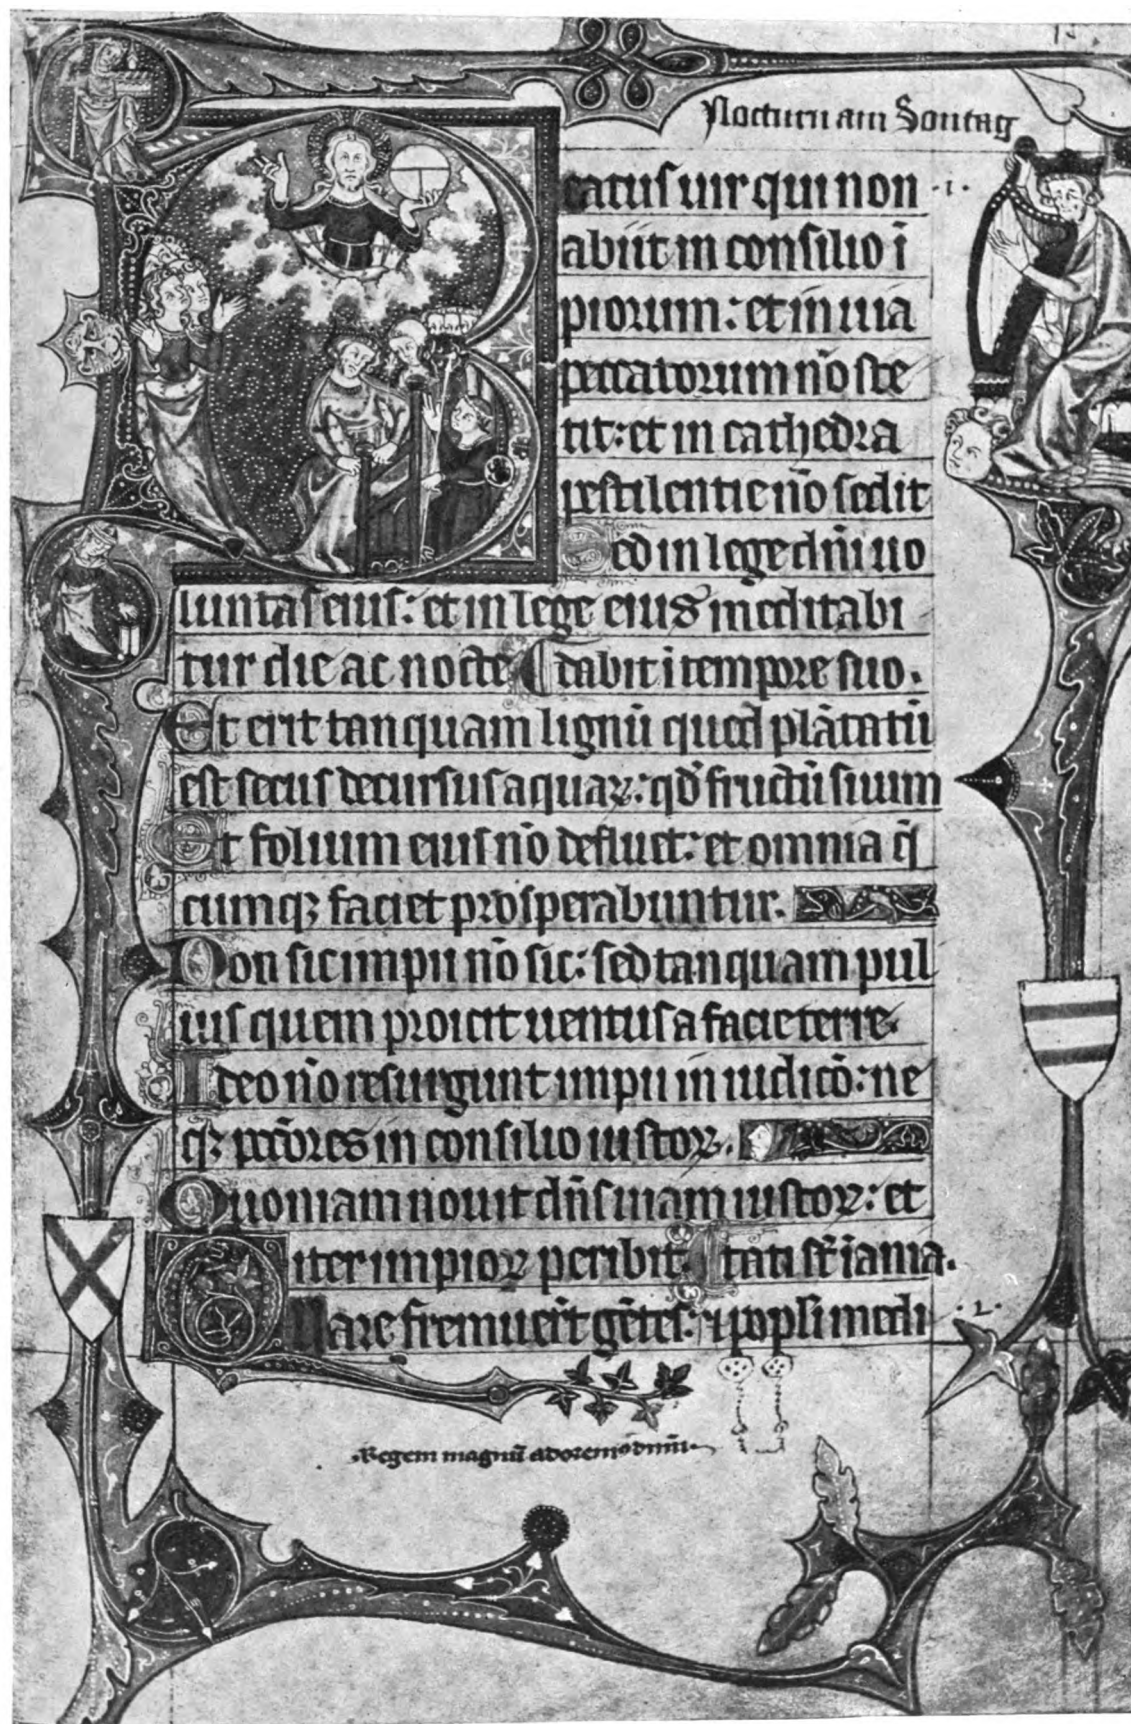 Nocturn am Sontag
Beatus uir qui non ·1·
abiit in consilio ī
piorum: et in uia
peccatorum nō ste
tit: et in cathedra
pestilentie nō sedit
Sed in lege dn̄i uo
luntas eius: et in lege eius meditabi
tur die ac nocte dabit ī tempore suo.
Et erit tanquam lignū quod plātatū
est secus decursus aquaꝝ: qd̄ fructū suum
Et folium eius nō defluet: et omnia q̄
cumqꝫ faciet prosperabuntur.
Non sic impii nō sic: sed tanquam pul
uis quem proicit uentus a facie terre.
Ideo nō resurgunt impii in iudicō: ne
qꝫ pccōres in consilio iustoꝝ.
Quoniam nouit dn̄s uiam iustoꝝ: et
iter impioꝝ peribit. tati sr̄ īania.
Quare fremuer̄t gētes: ⁊ popl̄i medi ·2·
Regem magnū adoremꝰ dn̄m